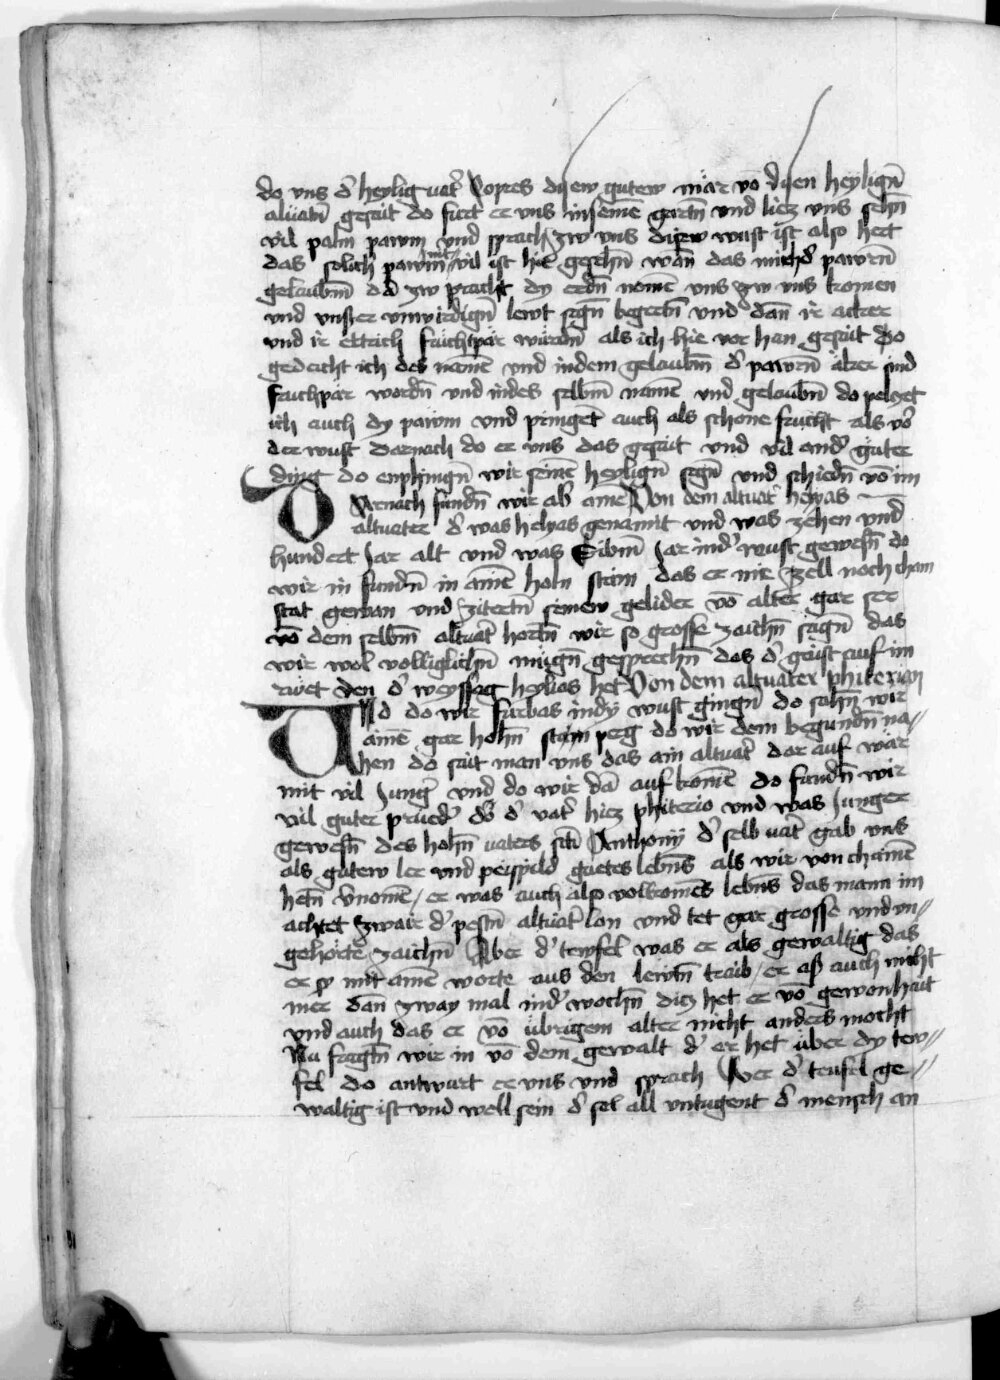 do vns d' heylig vat' Copres dysew gutew mär vō dysen heyligñ
altuatn̄ gesait do furt er vns in seinē gartn̄ vnd liez vns sehn̄
vil palm pawm vnd sprach zw vns disew wust ist also hert
das solich pawm nit vil ist hie gesehn̄ wan das mich d' pawrñ
gelaubm̄ da zw pracht dy erdn̄ nomē vns zw vns komen
vnd vnser vnwirdign̄ lewt segn̄ begertn̄ vnd dan̄ ir acker
vnd ir ertrich fruchtpär wurdn̄ als ich hie vor han gesait do
gedacht ich des namē vnd in dem gelaubm̄ d' pawrñ äker sind
fruchpär wordn̄ vnd in des selbm̄ namē vnd gelaubn̄ do pelczt
ich auch dy pawm vnd pringēt auch als schone frucht als vor
der wust Darnach do er vns das gesait vnd vil and' guter
ding do enphingn̄ wir seinē heyligñ segn̄ vnd schiedn̄ vō im
Darnach fundn̄ wir ab' aine Von dem altuat' helyas
altuater d' was helyas genannt vnd was zehen vnd
hundert Jar alt vnd was Sibm̄ Jar in d' wust gewesn̄ do
wir in fundn̄ in ainē holn stain das er nie zell noch cham
stat gewan vnd zitertn̄ seinew gelider vō alter gar ser
vō dem selbm̄ altuat' hortn̄ wir so grosse zaichn̄ sagn̄ das
wir wol volliglichn̄ mügn̄ gesprechn̄ das d' geist auf im
ruet den d' weyssag helias het Von dem altuater phiterion
Vnd do wir furbas in dy wust gingn̄ do sahn̄ wir
ainē gar hohn̄ stain perg do wir dem begundn̄ na-
hen do sait man vns das ain altuat' dar auf wär
mit vil Jung' vnd do wir da auf komē do fundn̄ wir
vil guter prued' vn̄ d' vat' hiez phiterio vnd was Junger
gewesn̄ des hohn̄ vaters sct̄i Anthonij d' selb vat' gab vns
als gutew ler vnd peispild guetes lebn̄s als wir von chainē
hetn̄ v'nomē / er was auch also volkomēs lebn̄s das mann im
achtet zwair d' pestn̄ altuat' lon vnd tet gar grosse vnd vn-
gehörte zaichn̄ Aber d' tewfel was er als gewaltig das
er sy mit ainē worte aus den lewtn̄ traib / er aß auch nicht
mer dan̄ zway mal in d' wochn̄ dicz het er vō gewonhait
vnd auch das er vō übrigem alter nicht anders mocht
Nu fragtn̄ wir in vō dem gewalt d' er het über dy tew-
fel do antwurt er vns vnd sprach Wer d' teufel ge-
waltig ist vnd well sein d' sol all vntugent d' mensch an